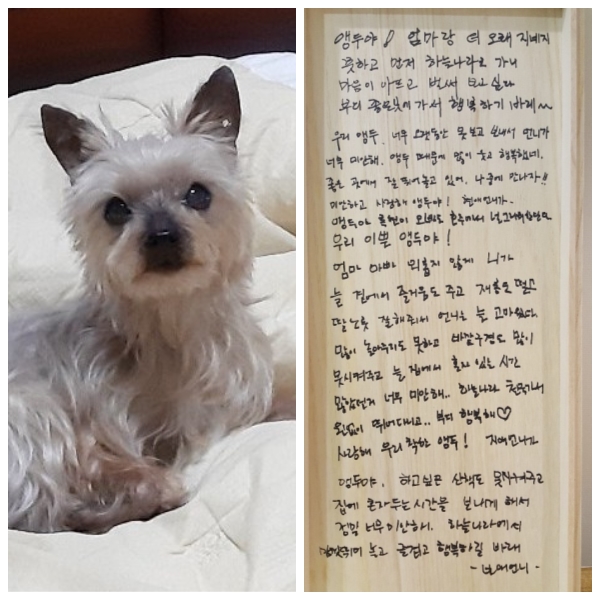 앵두야! 엄마랑 더 오래 지내지
못하고 먼저 하늘나라로 가니
마음이 아프고 벌써 보고싶다
부디 좋은곳에 가서 행복하기 바래~~
우리 앵두. 너무 오랫동안 못보고 보내서 언니가
너무 미안해. 앵두 때문에 많이 웃고 행복했네.
좋은 곳에서 잘 뛰어놀고 있어. 나중에 만나자!!
미안하고 사랑해 앵두야! 언니가.
앵두야 오빠도
우리 이쁜 앵두야!
엄마 아빠 외롭지 않게 니가
늘 곁에서 즐거움도 주고 재롱도 떨고
딸노릇 잘해줘서 언니는 늘 고마웠다.
많이 놀아주지도 못하고 바깥구경도 많이
못시켜주고 늘 집에서 혼자 있는 시간
많았던거 너무 미안해.. 하늘나라
원없이 뛰어다니고.. 부디 행복해♡
사랑해 우리 착한 앵두! 언니가
앵두야. 하고싶은 산책도 못시켜주고
집에 혼자두는시간을 보내게 해서
정말 너무 미안하다. 하늘나라에서
놀고 즐겁고 행복하길 바래
언니-